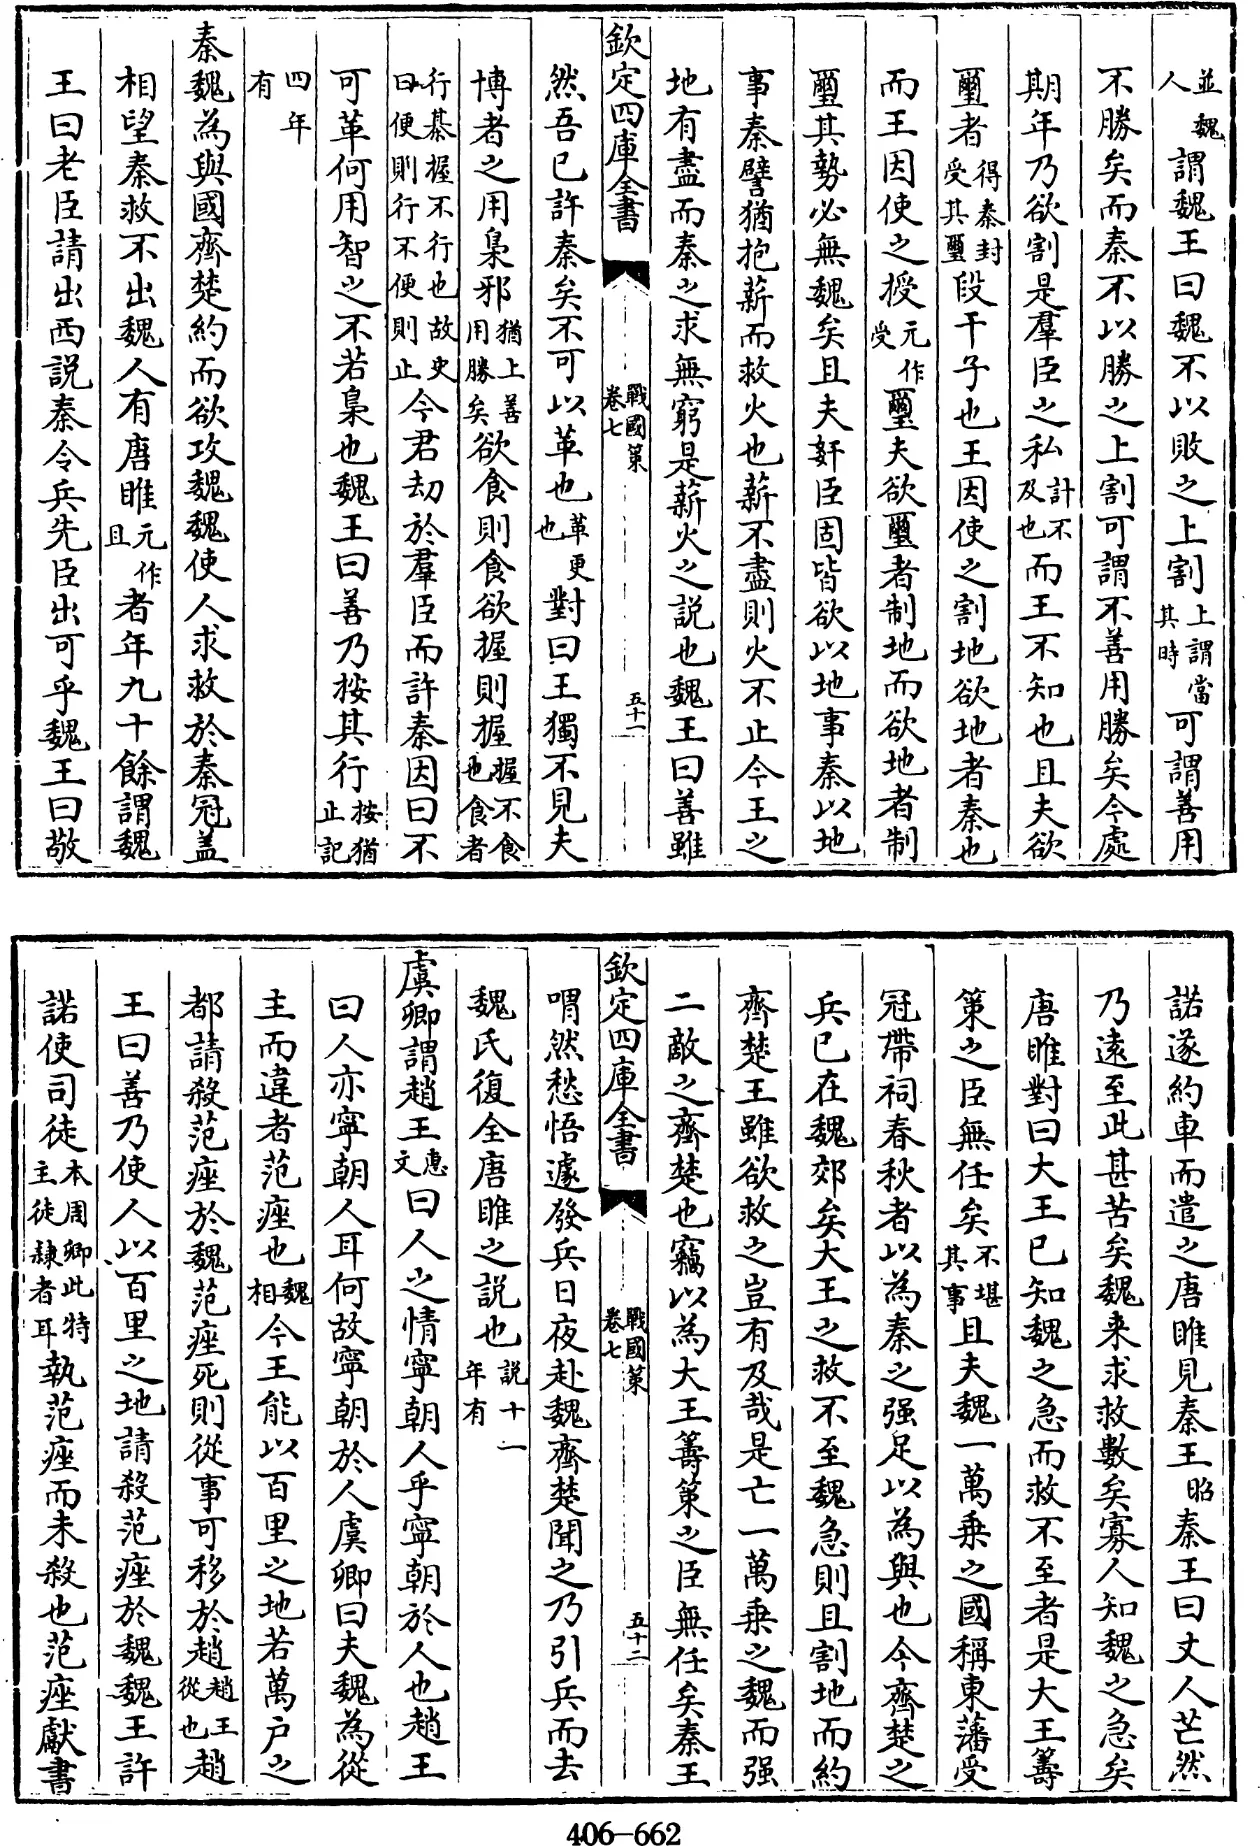 並魏人謂魏王曰魏不以敗之上割上謂當其時可謂善用
不勝矣而秦不以勝之上割可謂不善用勝矣今處
期年乃欲割是羣臣之私計不及也而王不知也且夫欲
璽者得秦封受其璽段干子也王因使之割地欲地者秦也
而王因使之授元作受璽夫欲璽者制地而欲地者制
璽其勢必無魏矣且夫奸臣固皆欲以地事秦以地
事秦譬猶抱薪而救火也薪不盡則火不止今王之
地有盡而秦之求無窮是薪火之説也魏王曰善雖
欽定四庫全書 戰國策卷七 五十一
然吾已許秦矣不可以革也革更也對曰王獨不見夫
博者之用梟邪猶上善用勝矣欲食則食欲握則握握不食也食者
行棊握不行也故史曰便則行不便則止今君劫於羣臣而許秦因曰不
可革何用智之不若梟也魏王曰善乃按其行按猶止記
四年有
秦魏為與國齊楚約而欲攻魏魏使人求救於秦冠盖
相望秦救不出魏人有唐雎元作且者年九十餘謂魏
王曰老臣請出西説秦令兵先臣出可乎魏王曰敬
諾遂約車而遣之唐雎見秦王昭秦王曰丈人芒然
乃遠至此甚苦矣魏来求救數矣寡人知魏之急矣
唐雎對曰大王已知魏之急而救不至者是大王籌
策之臣無任矣不堪其事且夫魏一萬乗之國稱東藩受
冠帶祠春秋者以為秦之强足以為與也今齊楚之
兵已在魏郊矣大王之救不至魏急則且割地而約
齊楚王雖欲救之豈有及哉是亡一萬乗之魏而强
二敵之齊楚也竊以為大王籌策之臣無任矣秦王
欽定四庫全書 戰國策卷七 五十二
喟然愁悟遽發兵日夜赴魏齊楚聞之乃引兵而去
魏氏復全唐雎之説也説十一年有
虞卿謂趙王惠文曰人之情寧朝人乎寧朝於人也趙王
曰人亦寧朝人耳何故寧朝於人虞卿曰夫魏為從
主而違者范痤也魏相今王能以百里之地若萬户之
都請殺范痤於魏范痤死則從事可移於趙趙王從也趙
王曰善乃使人以百里之地請殺范痤於魏魏王許
諾使司徒本周卿此特主徒隸者耳執范痤而未殺也范痤獻書
406-662